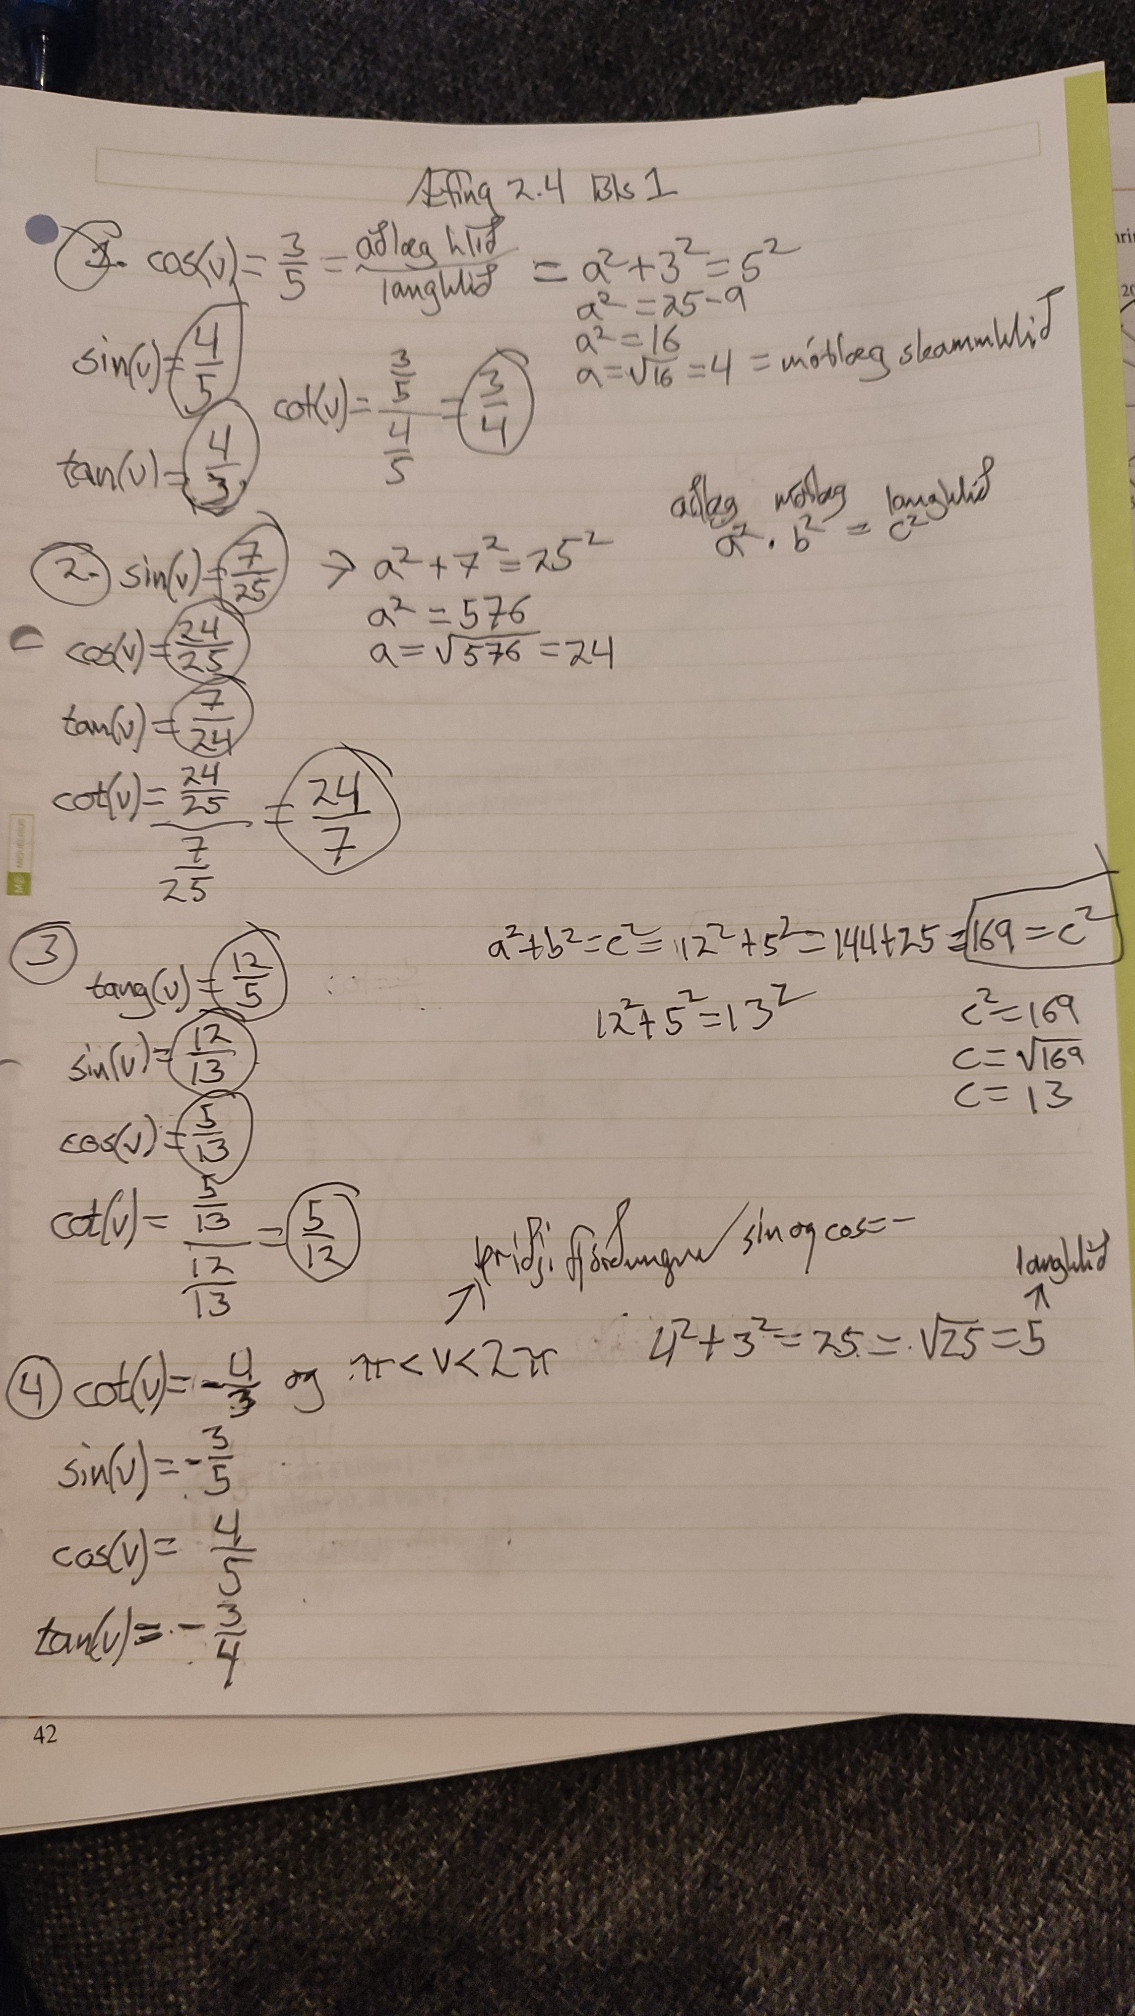 Æfing 2.4 Bls 1
1. cos(v) = 3/5 = aðlæg hlið/langhlið = a² + 3² = 5²
a² = 25 - 9
a² = 16
a = √16 = 4 = mótlæg skammhlið
sin(v) = 4/5
cot(v) = 3/5 / 4/5 = 3/4
tan(v) = 4/3
aðlæg mótlæg langhlið
a² · b² = c²
2. sin(v) = 7/25 → a² + 7² = 25²
a² = 576
a = √576 = 24
cos(v) = 24/25
tan(v) = 7/24
cot(v) = 24/25 / 7/25 = 24/7
3 a² + b² = c² = 12² + 5² = 144 + 25 = 169 = c²
tang(v) = 12/5
12² + 5² = 13²
c² = 169
c = √169
c = 13
sin(v) = 12/13
cos(v) = 5/13
cot(v) = 5/13 / 12/13 = 5/12
þriðji fjórðungur / sin og cos = -
langhlið
4 cot(v) = -4/3 og π < v < 2π
4² + 3² = 25 = √25 = 5
sin(v) = -3/5
cos(v) = 4/5
tan(v) = -3/4
42